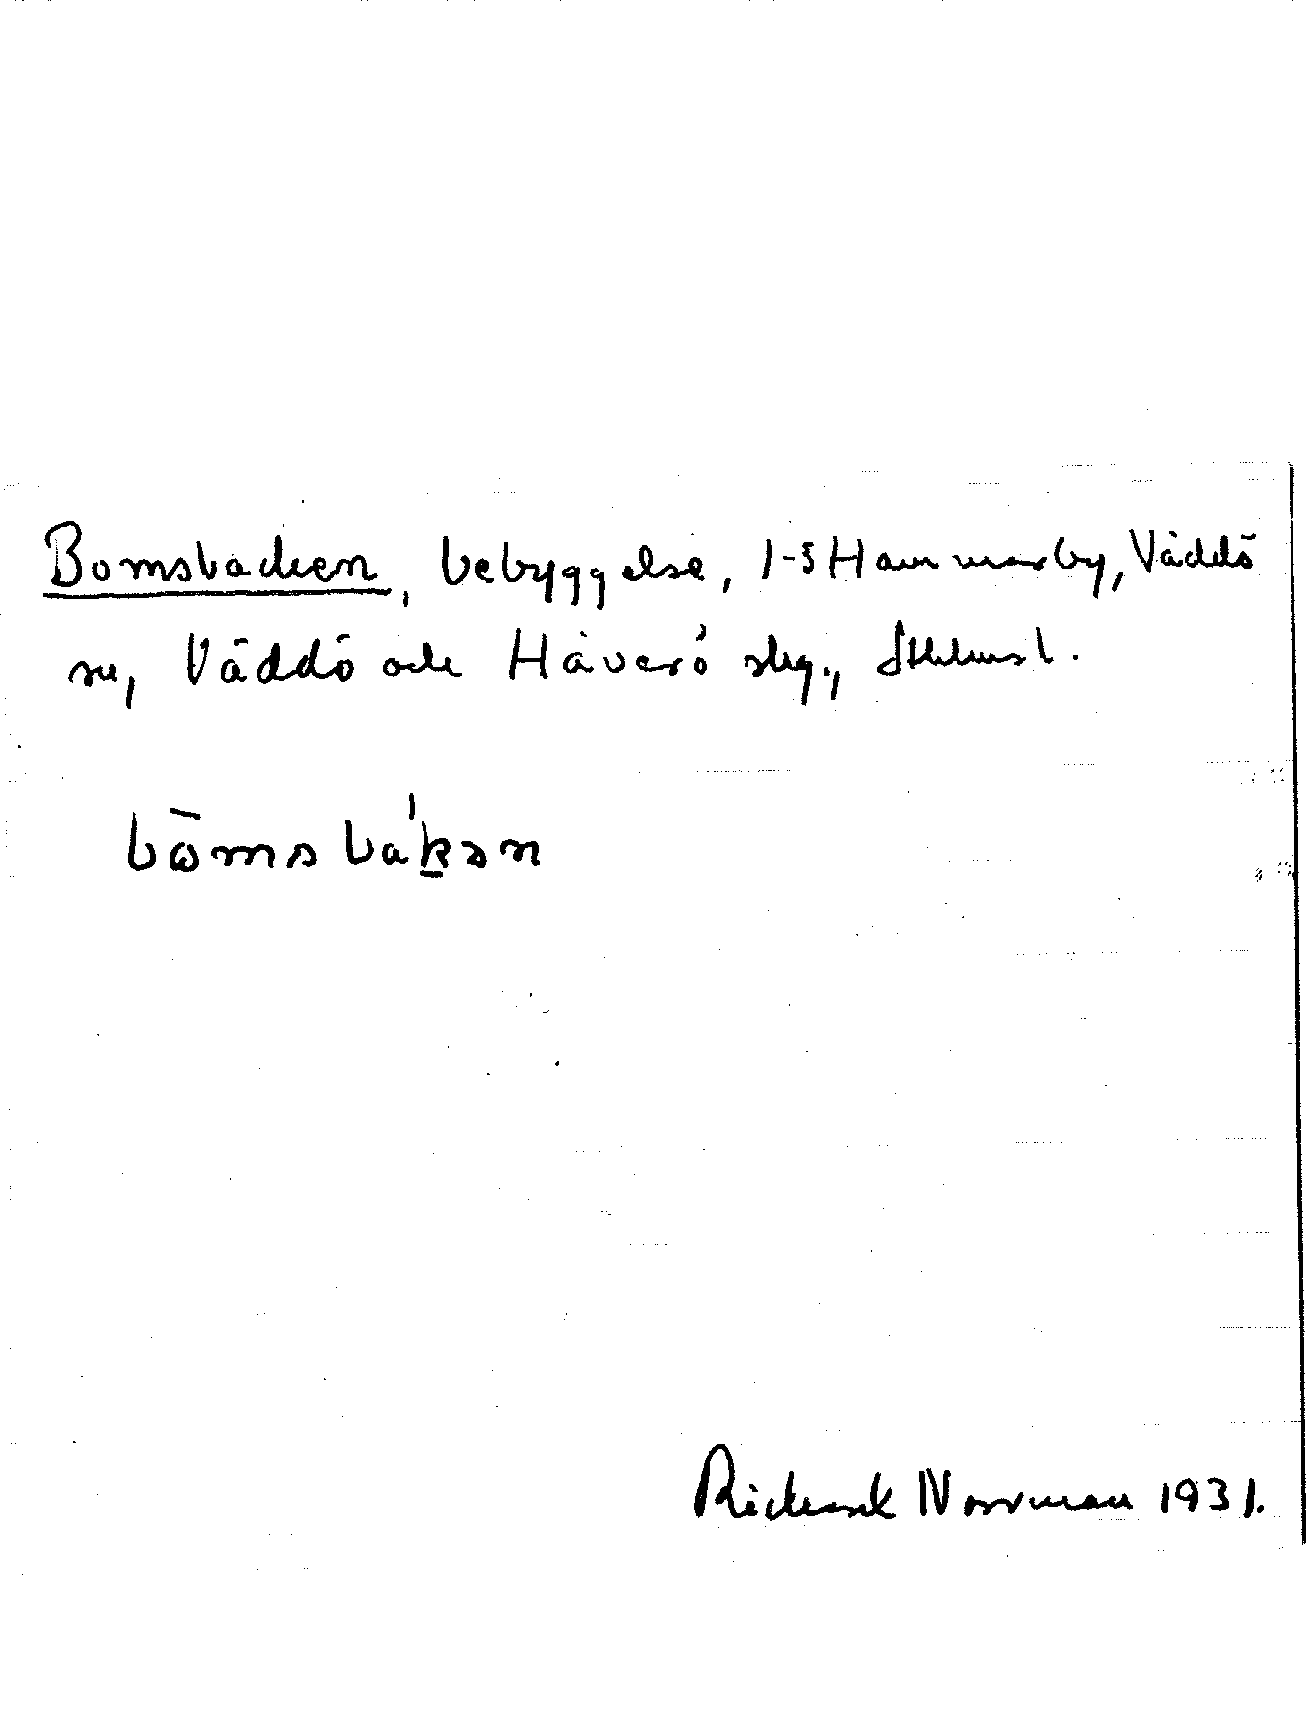 Bomsbacken, bebyggelse, 1-5 Hammarby, Väddö
sn, Väddö och Häverö skg., Sthlms l.
bω̄msbákən
Rickard Norrman 1931.